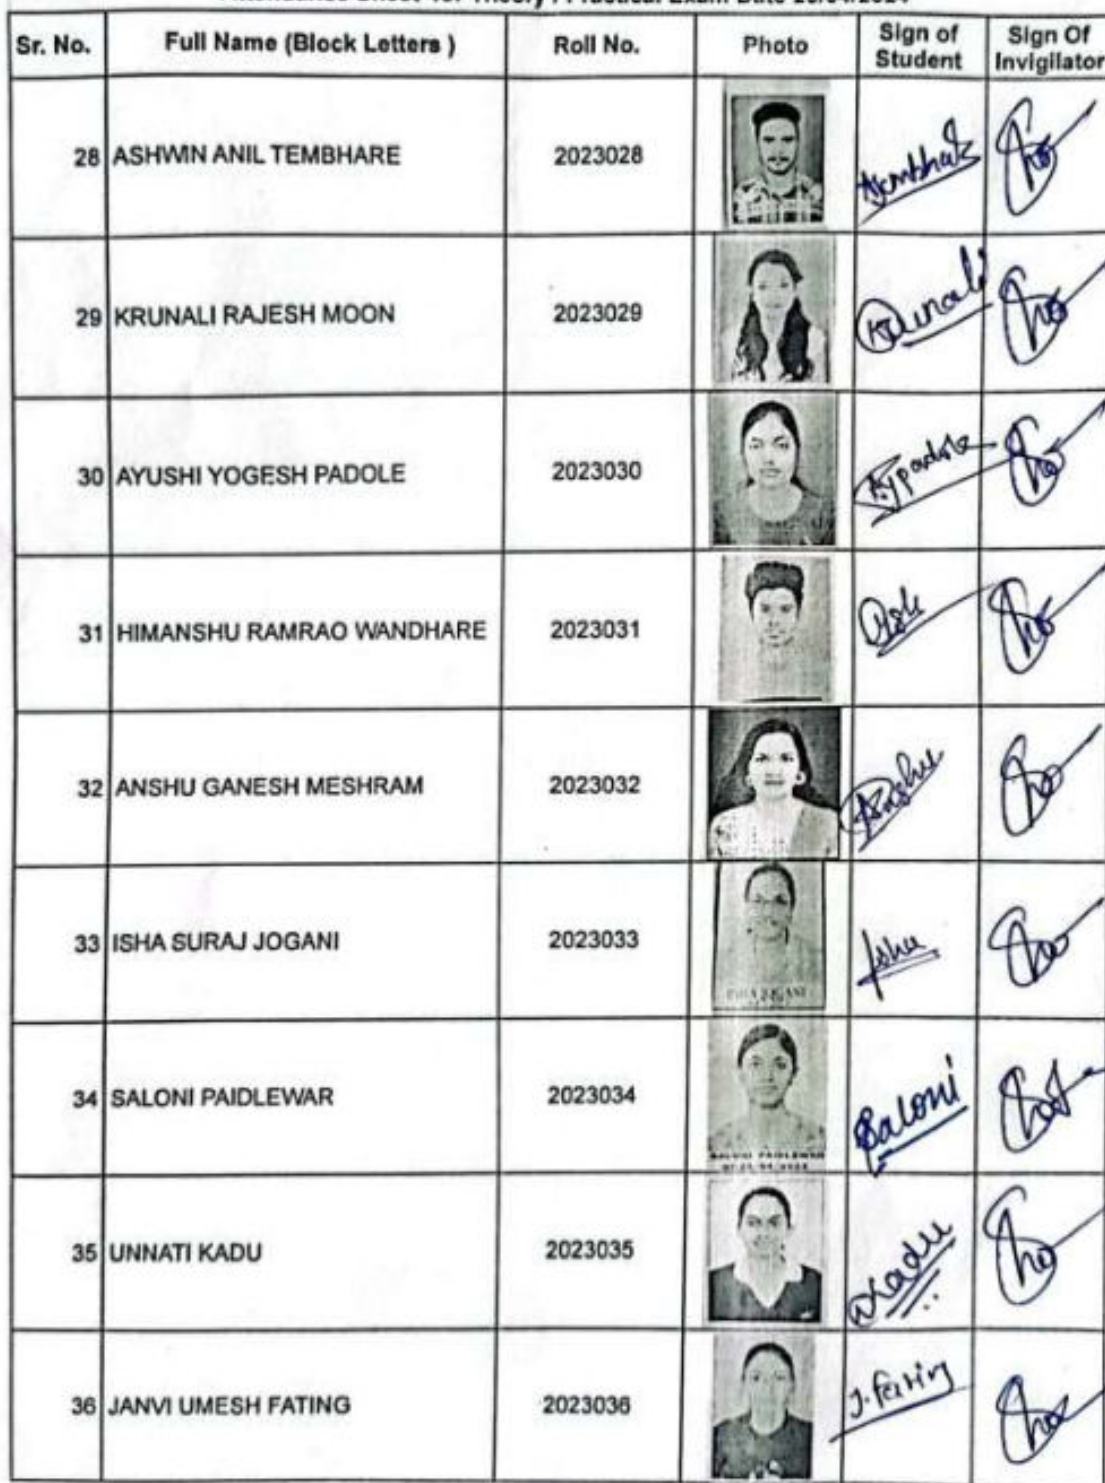 Attendance Sheet for Theory / Practical Exam Date
Sr. No. Full Name (Block Letters ) Roll No. Photo Sign of Student Sign Of Invigilator
28 ASHWIN ANIL TEMBHARE 2023028
29 KRUNALI RAJESH MOON 2023029 Krunali
30 AYUSHI YOGESH PADOLE 2023030 Aypadole
31 HIMANSHU RAMRAO WANDHARE 2023031
32 ANSHU GANESH MESHRAM 2023032 Anshu
33 ISHA SURAJ JOGANI 2023033 ISHA JOGANI Isha
34 SALONI PAIDLEWAR 2023034 SALONI PAIDLEWAR Saloni
35 UNNATI KADU 2023035 Kadu
36 JANVI UMESH FATING 2023036 J. Fating